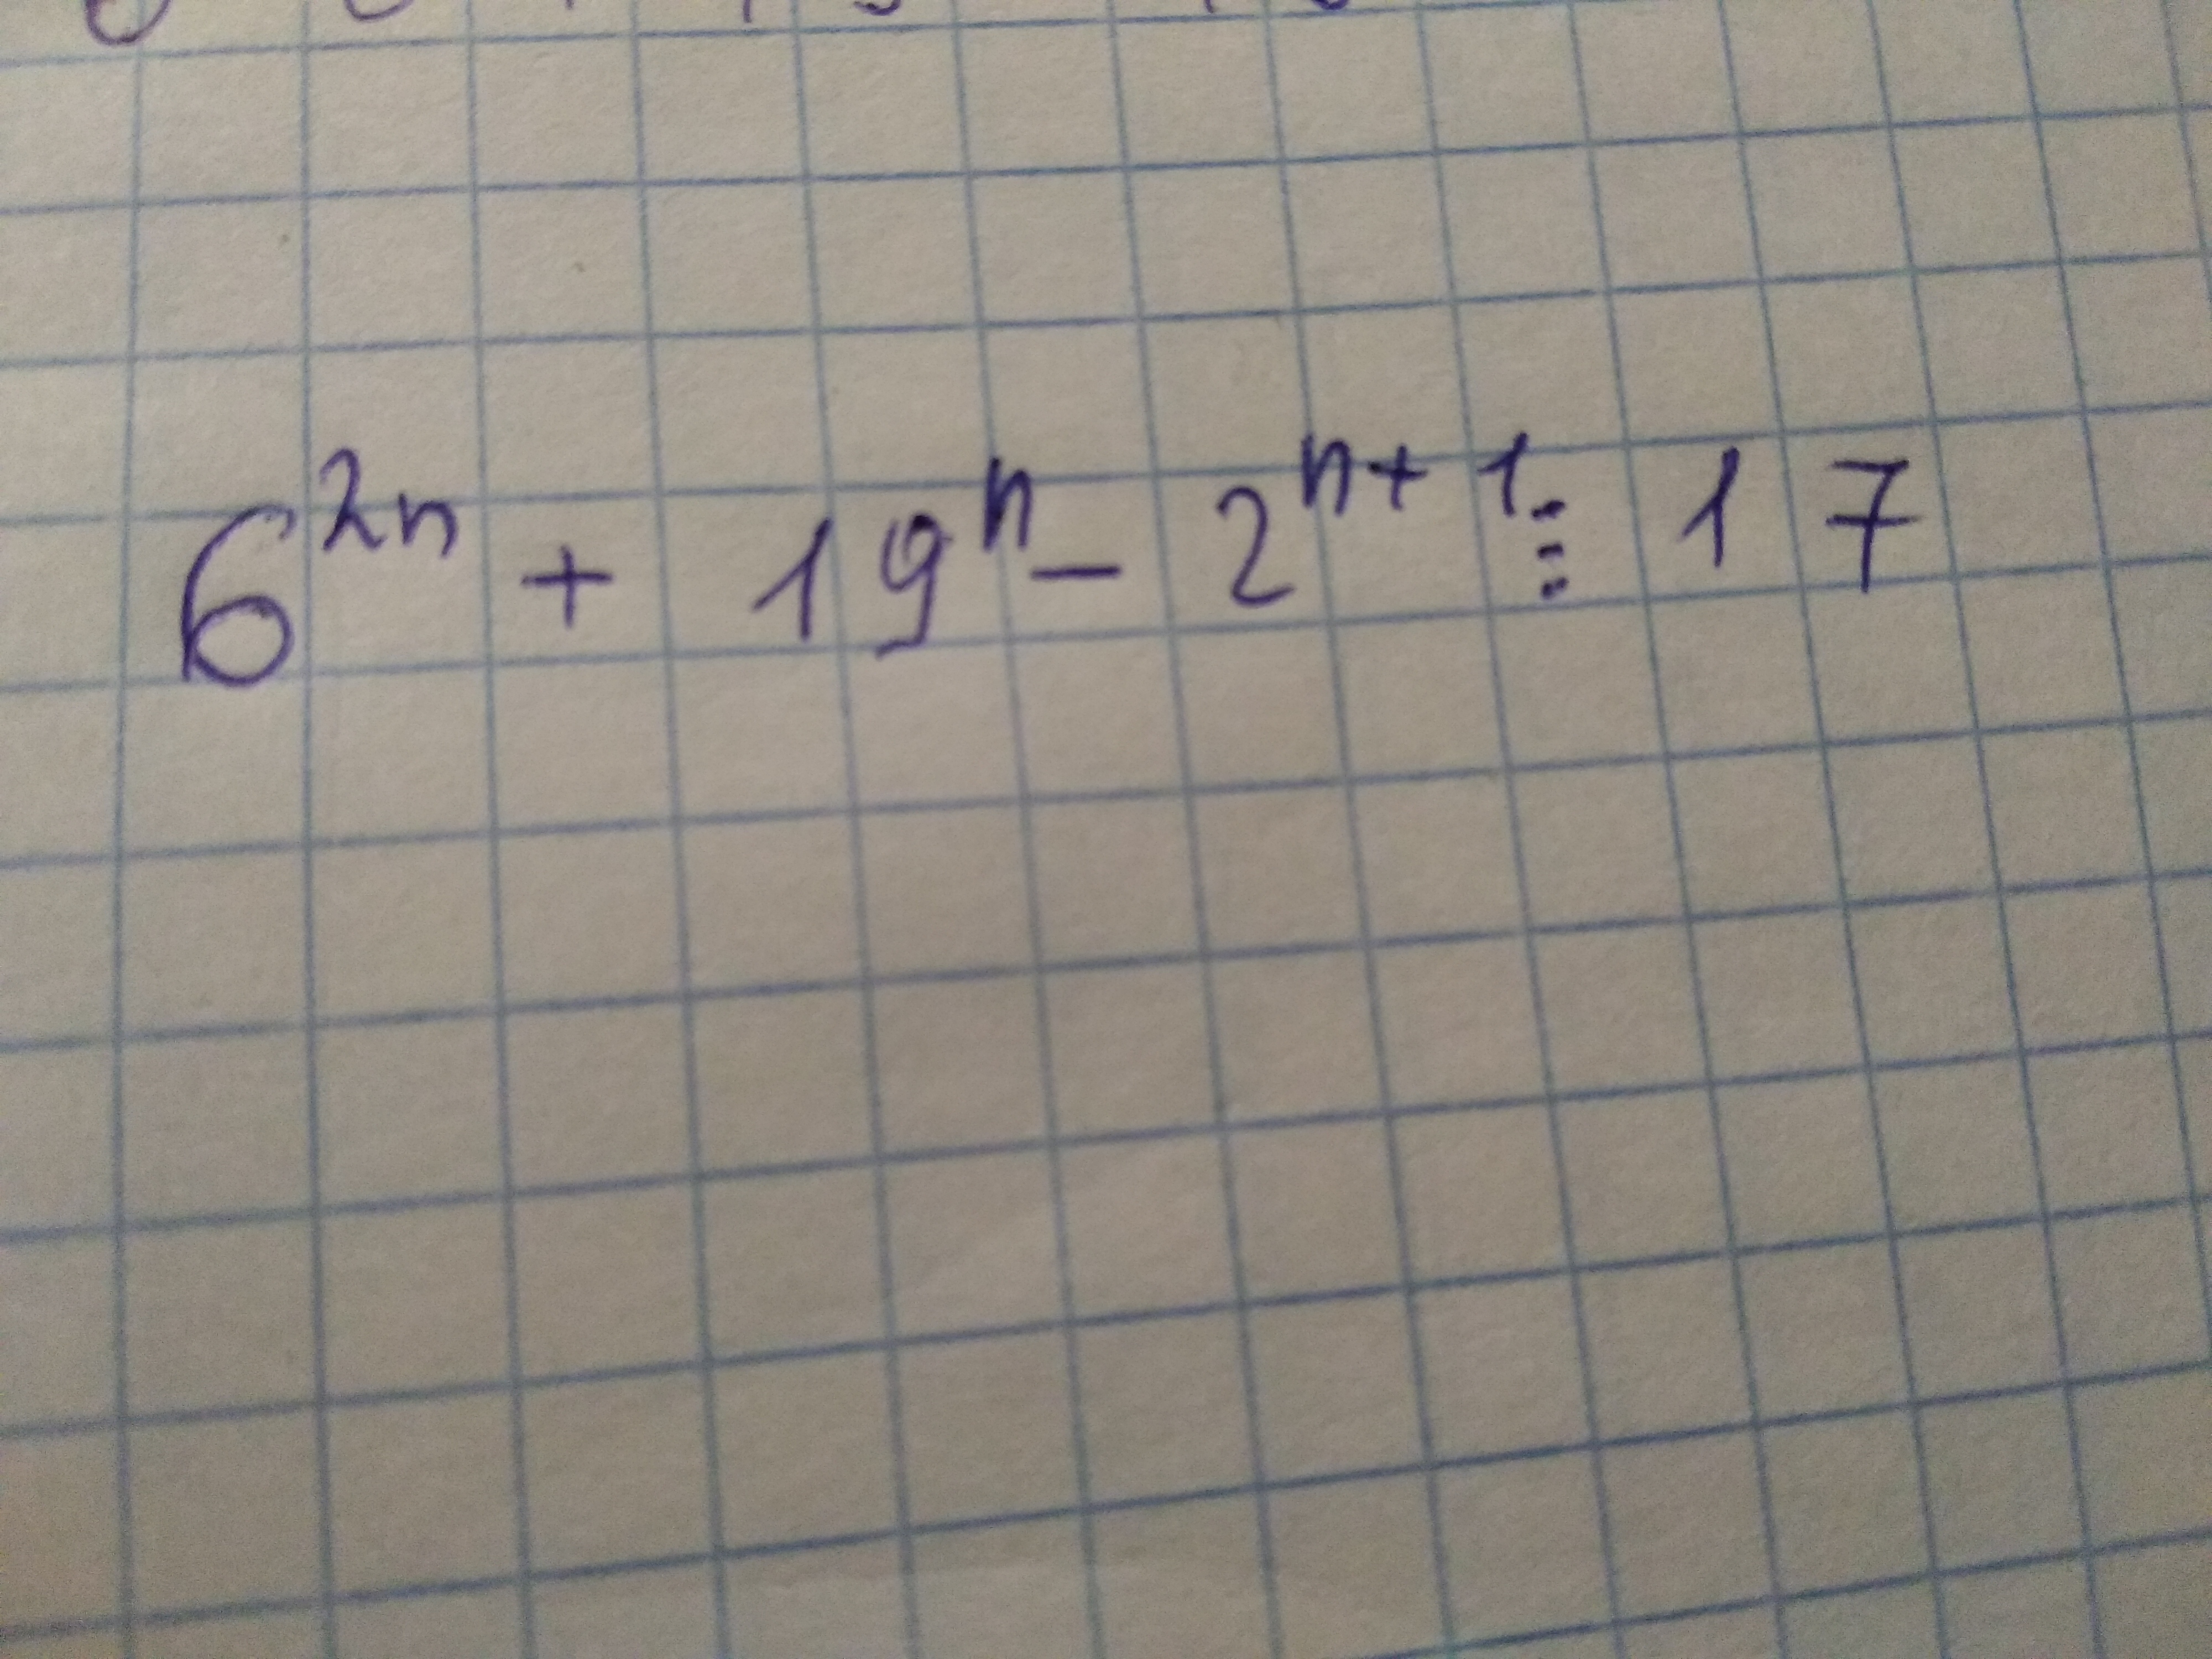 6²ⁿ + 19ⁿ - 2ⁿ⁺¹ ⋮ 17